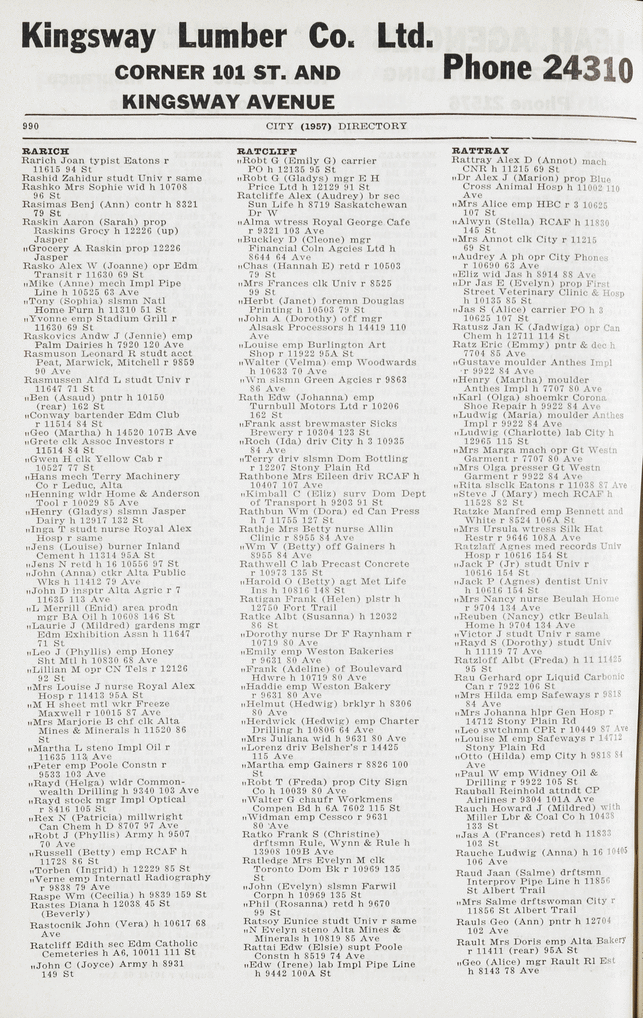 Kingsway Lumber Co. Ltd.
CORNER 101 ST. AND
KINGSWAY AVENUE
Phone 24310
990
CITY (1957) DIRECTORY
RARICH
Rarich Joan typist Eatons r
11615 94 St
Rashid Zahidur studt Univ r same
Rashko Mrs Sophie wid h 10708
96 St
Rasimas Benj (Ann) contr h 8321
79 St
Raskin Aaron (Sarah) prop
Raskins Grocy h 12226 (up)
Jasper
„Grocery A Raskin prop 12226
Jasper
Rasko Alex W (Joanne) opr Edm
Transit r 11630 69 St
„Mike (Anne) mech Impl Pipe
Line h 10525 63 Ave
„Tony (Sophia) slsmn Natl
Home Furn h 11310 51 St
„Yvonne emp Stadium Grill r
11630 69 St
Raskovics Andw J (Jennie) emp
Palm Dairies h 7920 120 Ave
Rasmuson Leonard R studt acct
Peat, Marwick, Mitchell r 9859
90 Ave
Rasmussen Alfd L studt Univ r
11647 71 St
„Ben (Asaud) pntr h 10150
(rear) 162 St
„Conway bartender Edm Club
r 11514 84 St
„Geo (Martha) h 14520 107B Ave
„Grete clk Assoc Investors r
11514 84 St
„Gwen H clk Yellow Cab r
10527 77 St
„Hans mech Terry Machinery
Co r Leduc, Alta
„Henning wldr Home & Anderson
Tool r 10029 85 Ave
„Henry (Gladys) slsmn Jasper
Dairy h 12917 132 St
„Inga T studt nurse Royal Alex
Hosp r same
„Jens (Louise) burner Inland
Cement h 11314 95A St
„Jens N retd h 16 10556 97 St
„John (Anna) ctkr Alta Public
Wks h 11412 79 Ave
„John D insptr Alta Agric r 7
11635 113 Ave
„L Merrill (Enid) area prodn
mgr BA Oil h 10608 146 St
„Laurie J (Mildred) gardens mgr
Edm Exhibition Assn h 11647
71 St
„Leo J (Phyllis) emp Honey
Sht Mtl h 10830 68 Ave
„Lillian M opr CN Tels r 12126
92 St
„Mrs Louise J nurse Royal Alex
Hosp r 11413 95A St
„M H sheet mtl wkr Freeze
Maxwell r 10015 87 Ave
„Mrs Marjorie B chf clk Alta
Mines & Minerals h 11520 86
St
„Martha L steno Impl Oil r
11635 113 Ave
„Peter emp Poole Constn r
9533 103 Ave
„Rayd (Helga) wldr Common-
wealth Drilling h 9340 103 Ave
„Rayd stock mgr Impl Optical
r 8416 105 St
„Rex N (Patricia) millwright
Can Chem h D 8707 97 Ave
„Robt J (Phyllis) Army h 9507
70 Ave
„Russell (Betty) emp RCAF h
11728 86 St
„Torben (Ingrid) h 12229 85 St
„Verne emp Internatl Radiography
r 9838 79 Ave
Raspe Wm (Cecilia) h 9839 159 St
Rastes Diana h 12038 45 St
(Beverly)
Rastoonik John (Vera) h 10617 68
Ave
Ratcliff Edith sec Edm Catholic
Cemeteries h A6, 10011 111 St
„John C (Joyce) Army h 8931
149 St
RATCLIFF
„Robt G (Emily G) carrier
PO h 12135 95 St
„Robt G (Gladys) mgr E H
Price Ltd h 12129 91 St
Ratcliffe Alex (Audrey) br sec
Sun Life h 8719 Saskatchewan
Dr W
„Alma wtress Royal George Cafe
r 9321 103 Ave
„Buckley D (Cleone) mgr
Financial Coln Agcies Ltd h
8644 64 Ave
„Chas (Hannah E) retd r 10503
79 St
„Mrs Frances clk Univ r 8525
99 St
„Herbt (Janet) foremn Douglas
Printing h 10503 79 St
„John A (Dorothy) off mgr
Alsask Processors h 14419 110
Ave
„Louise emp Burlington Art
Shop r 11922 95A St
„Walter (Velma) emp Woodwards
h 10633 70 Ave
„Wm slsmn Green Agcies r 9863
86 Ave
Rath Edw (Johanna) emp
Turnbull Motors Ltd r 10206
162 St
„Frank asst brewmaster Sicks
Brewery r 10304 123 St
„Roch (Ida) driv City h 3 10935
84 Ave
„Terry driv slsmn Dom Bottling
r 12207 Stony Plain Rd
Rathbone Mrs Eileen driv RCAF h
10407 107 Ave
„Kimball C (Eliz) surv Dom Dept
of Transport h 9203 91 St
Rathbun Wm (Dora) ed Can Press
h 7 11755 127 St
Rathje Mrs Betty nurse Allin
Clinic r 8955 84 Ave
„Wm V (Betty) off Gainers h
8955 84 Ave
Rathwell C lab Precast Concrete
r 10973 135 St
„Harold O (Betty) agt Met Life
Ins h 10816 148 St
Ratigan Frank (Helen) plstr h
12750 Fort Trail
Ratke Albt (Susanna) h 12032
86 St
„Dorothy nurse Dr F Raynham r
10719 80 Ave
„Emily emp Weston Bakeries
r 9631 80 Ave
„Frank (Adeline) of Boulevard
Hdwre h 10719 80 Ave
„Haddie emp Weston Bakery
r 9631 80 Ave
„Helmut (Hedwig) brklyr h 8306
80 Ave
„Herdwick (Hedwig) emp Charter
Drilling h 10806 64 Ave
„Mrs Juliana wid h 9631 80 Ave
„Lorenz driv Belsher's r 14425
115 Ave
„Martha emp Gainers r 8826 100
St
„Robt T (Freda) prop City Sign
Co h 10039 80 Ave
„Walter G chaufr Workmens
Compen Bd h 6A 7602 115 St
„Widman emp Cessco r 9631
80 Ave
Ratko Frank S (Christine)
drftsmn Rule, Wynn & Rule h
13908 109B Ave
Ratledge Mrs Evelyn M clk
Toronto Dom Bk r 10969 135
St
„John (Evelyn) slsmn Farwil
Corpn h 10969 135 St
„Phil (Rosanna) retd h 9670
99 St
Ratsoy Eunice studt Univ r same
„N Evelyn steno Alta Mines &
Minerals h 10819 85 Ave
Rattai Edw (Elsie) supt Poole
Constn h 8519 74 Ave
„Edw (Irene) lab Impl Pipe Line
h 9442 100A St
RATTRAY
Rattray Alex D (Annot) mach
CNR h 11215 69 St
„Dr Alex J (Marion) prop Blue
Cross Animal Hosp h 11002 110
Ave
„Mrs Alice emp HBC r 3 10625
107 St
„Alwyn (Stella) RCAF h 11830
145 St
„Mrs Annot clk City r 11215
69 St
„Audrey A ph opr City Phones
r 10690 63 Ave
„Eliz wid Jas h 8914 88 Ave
„Dr Jas E (Evelyn) prop First
Street Veterinary Clinic & Hosp
h 10135 85 St
„Jas S (Alice) carrier PO h 3
10625 107 St
Ratusz Jan K (Jadwiga) opr Can
Chem h 12711 114 St
Ratz Erie (Emmy) pntr & dec h
7704 85 Ave
„Gustave moulder Anthes Impl
r 9922 84 Ave
„Henry (Martha) moulder
Anthes Impl h 7707 80 Ave
„Karl (Olga) shoemkr Corona
Shoe Repair h 9922 84 Ave
„Ludwig (Maria) moulder Anthes
Impl r 9922 84 Ave
„Ludwig (Charlotte) lab City h
12965 115 St
„Mrs Marga mach opr Gt Westn
Garment r 7707 80 Ave
„Mrs Olga presser Gt Westn
Garment r 9922 84 Ave
„Rita slsclk Eatons r 11038 87 Ave
„Steve J (Mary) mech RCAF h
11528 82 St
Ratzke Manfred emp Bennett and
White r 8524 106A St
„Mrs Ursula wtress Silk Hat
Restr r 9646 108A Ave
Ratzlaff Agnes med records Univ
Hosp r 10616 154 St
„Jack P (Jr) studt Univ r
10616 154 St
„Jack P (Agnes) dentist Univ
h 10616 154 St
„Mrs Nancy nurse Beulah Home
r 9704 134 Ave
„Reuben (Nancy) ctkr Beulah
Home h 9704 134 Ave
„Victor J studt Univ r same
„Rayd S (Dorothy) studt Univ
h 11119 77 Ave
Ratzloff Albt (Freda) h 11 11425
95 St
Rau Gerhard opr Liquid Carbonic
Can r 7922 106 St
„Mrs Hilda emp Safeways r 9818
84 Ave
„Mrs Johanna hlpr Gen Hosp r
14712 Stony Plain Rd
„Leo swtchmn CPR r 10449 87 Ave
„Louise M emp Safeways r 14712
Stony Plain Rd
„Otto (Hilda) emp City h 9818 84
Ave
„Paul W emp Widney Oil &
Drilling r 9922 105 St
Rauball Reinhold attndt CP
Airlines r 9304 101A Ave
Rauch Howard J (Mildred) with
Miller Lbr & Coal Co h 10438
133 St
„Jas A (Frances) retd h 11833
103 St
Rauche Ludwig (Anna) h 16 10405
106 Ave
Raud Jaan (Salme) drftsmn
Interprov Pipe Line h 11856
St Albert Trail
„Mrs Salme drftswoman City r
11856 St Albert Trail
Rauls Geo (Ann) pntr h 12704
102 Ave
Rault Mrs Doris emp Alta Bakery
r 11411 (rear) 95A St
„Geo (Alice) mgr Rault Rl Est
h 8143 78 Ave